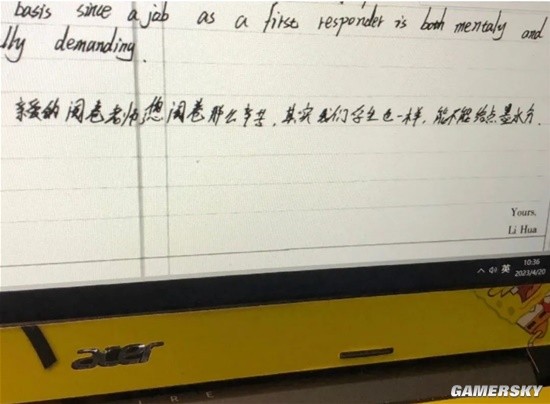 basis since a job as a first responder is both mentaly and
lly demanding.
亲爱的阅卷老师,您阅卷那么辛苦,其实我们学生也一样,能不能给点墨水分.
Yours,
Li Hua
英
10:36
2023/4/20
acer
GAMERSKY